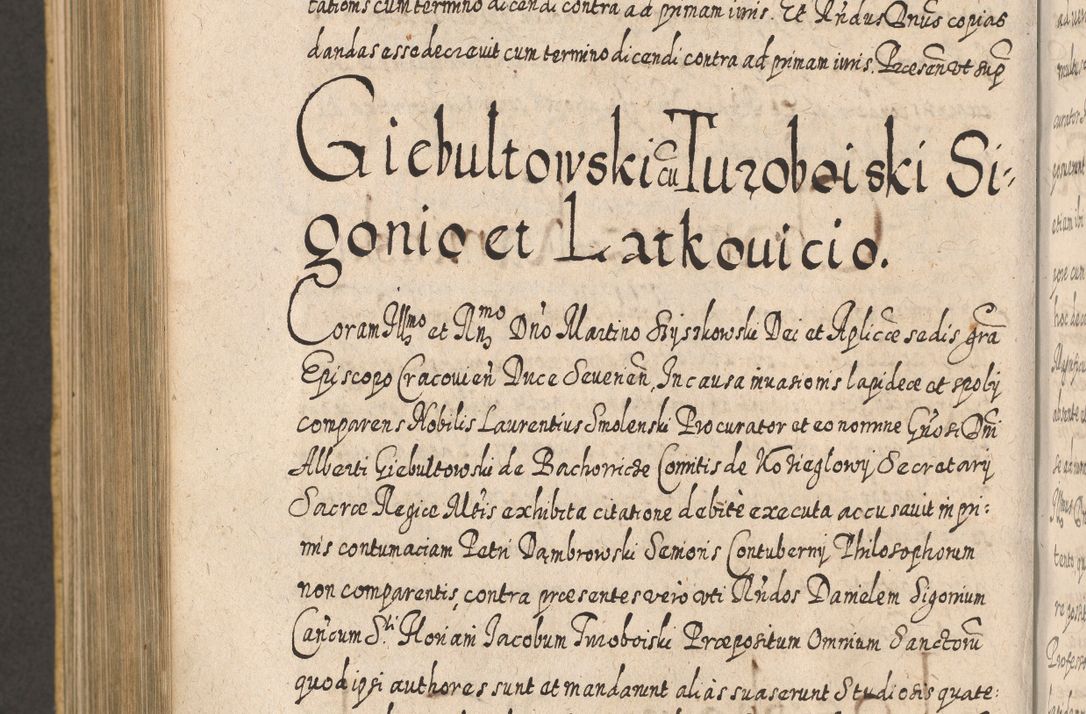 tationis cum termino dicendi contra ad primam iuris. Et Rndus Dnus copias
dandas esse decrevit cum termino dicendi contra ad primam iuris. Præsen ut sup
Giebultowski cu Turoboiski Si-
gonio et Latkouicio.
Coram Illmo et Rnmo Dno Martino Szyszkowski Dei et Aplicæ sedis gra
Episcopo Cracovien Duce Severien, In causa invasionis lapideæ et spolij
comparens Nobilis Laurentius Smolenski Procurator et eo nomine Gnosi Dni
Alberti Giebultowski de Bachowicze Comitis de Kozieglowy Secretarij
Sacræ Regiæ Mtis exhibita citatione debitè executa accusavit in pri:
mis contumaciam Petri Dąmbrowski Senioris Contubernij Philosophorum
non comparentis, contra præsentes verò uti Rndos Danielem Sigonium
Cancum Sti Floriani Jacobum Turoboiski Præpositum Omnium Sanctoru
quod ipsi authores sunt et mandarunt aliàs suaserunt Studiosis quate: